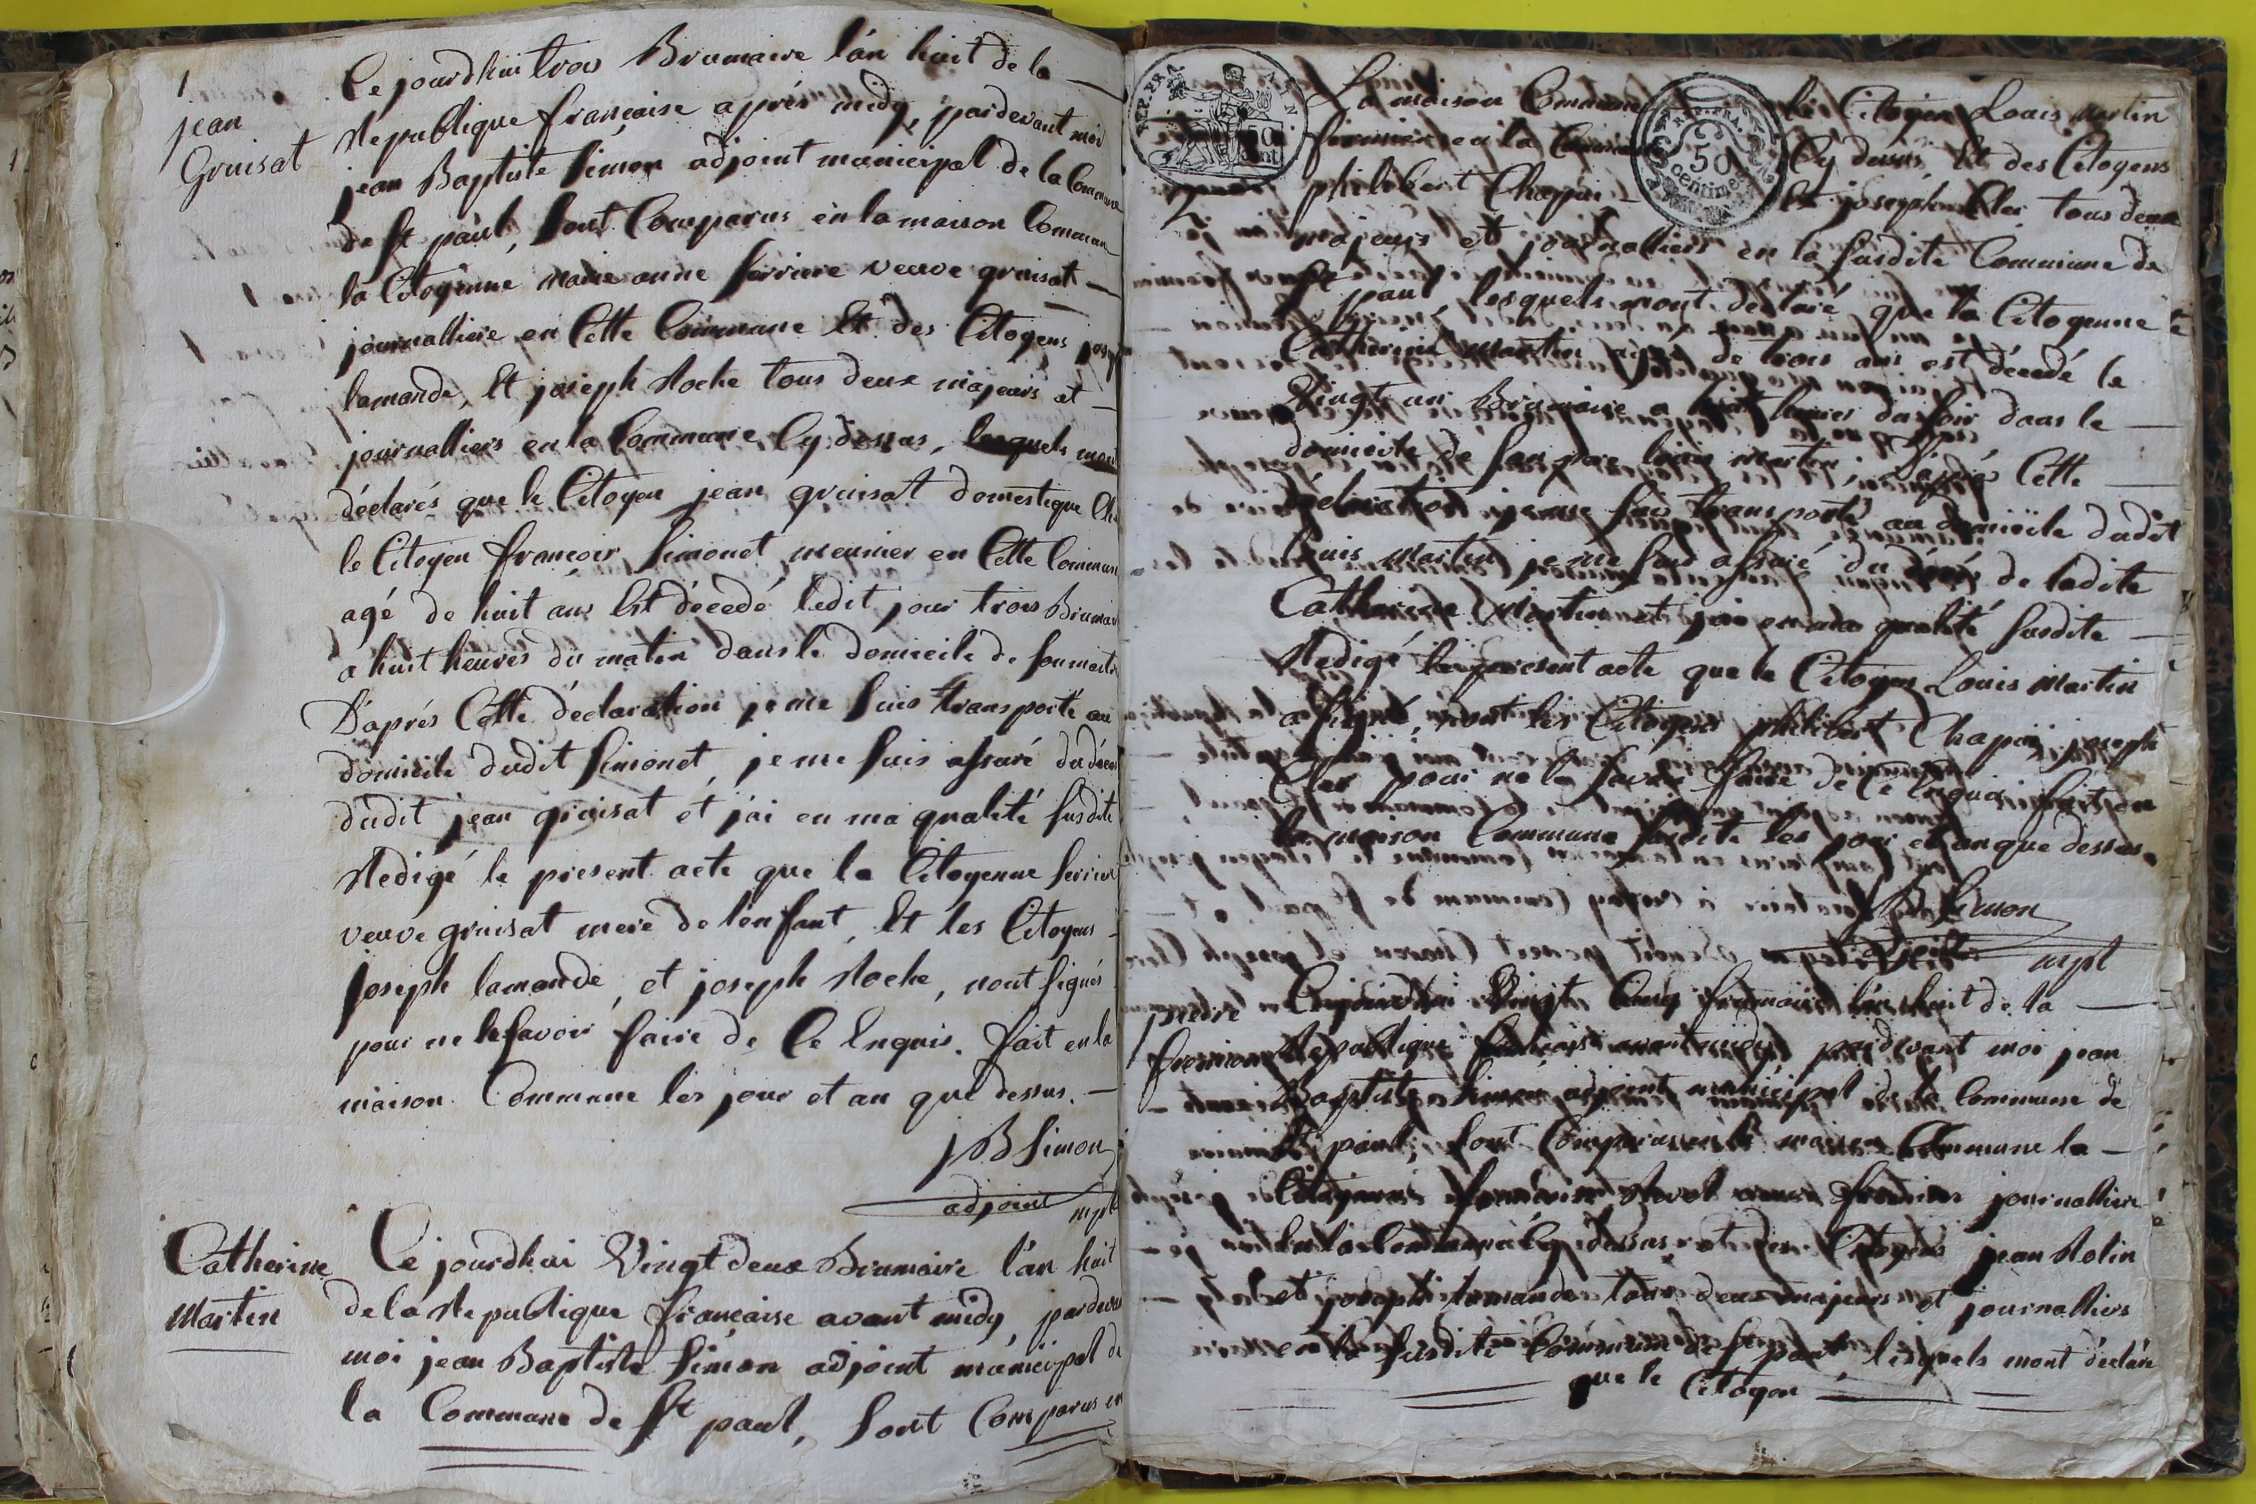 1
jean
Gruisat
Ce jourdhui trois Brumaire l'an huit de la
Republique française aprés midy, pardevant moi
jean Baptiste Simon adjoint municipal de la Commune
de St paul, sont Comparus en la maison Commune
la Citoyenne marie anne ferriere veuve gruisat
journalliere en Cette Commune Et des Citoyens
lamande, Et joseph Roche tous deux majeurs et
journalliers en la Commune Cy dessus, lesquels mont
déclarés que le Citoyen jean gruisat domestique Chez
le Citoyen françois Simonet meunier en Cette Commune
agé de huit ans Est décedé ledit jour trois Brumaire
a huit heures du matin dans le domicile de son maitre
D'aprés Cette déclaration je me suis transporté au
domicile dudit Simonet, je me suis assuré du décés
dudit jean gruisat et j'ai en ma qualité susdite
Redigé le present acte que la Citoyenne
veuve gruisat mere de l'enfant, Et les Citoyens
joseph lamande, et joseph Roche, nont signés
pour ne le savoir faire de Ce Enquis. fait en la
maison Commune les jour et an que dessus.
JB Simon
adjoint mpl
Catherine
Martin
Ce jourdhui Vingt deux Brumaire l'an huit
de la Republique francaise avant midy, pardevant
moi jean Baptiste Simon adjoint municipal de
la Commune de St paul, sont Comparus en
REP. FRA.
50 cent
REP. FRA.
50 centimes
La maison Commune le Citoyen Louis Martin
en la Commune Cy dessus Et des Citoyens
philibert Chapuis Et joseph Cler tous deux
majeurs et journalliers en la susdite Commune de
St paul, lesquels mont declaré que la Citoyenne
Catherine Martin agée de trois ans est décedé le
Vingt un Brumaire a huit heures du soir dans le
domicile de son pere louis martin, D'aprés Cette
déclaration je me suis transporté au domicile dudit
louis Martin je me suis assuré du décés de ladite
Catherine Martin et j'ai en ma qualité susdite
Redigé le present acte que le Citoyen Louis Martin
a signé, nont les Citoyens philibert Chapuis, joseph
Cler pour ne le savoir faire de Ce Enquis. fait en
la maison Commune susdite les jour et an que dessus.
JB Simon
adjoint mpl
Cejourdhui Vingt Cinq frimaire l'an huit de la
Republique francaise avant midy, pardevant moi jean
Baptiste Simon adjoint municipal de la Commune de
St paul, sont Comparus en la maison Commune la
Citoyenne journalliere
en la Commune Cy dessus et des Citoyens jean Rolin
et joseph lamande tous deux majeurs et journalliers
en la susdite Commune de St paul lesquels mont déclaré
que le Citoyen